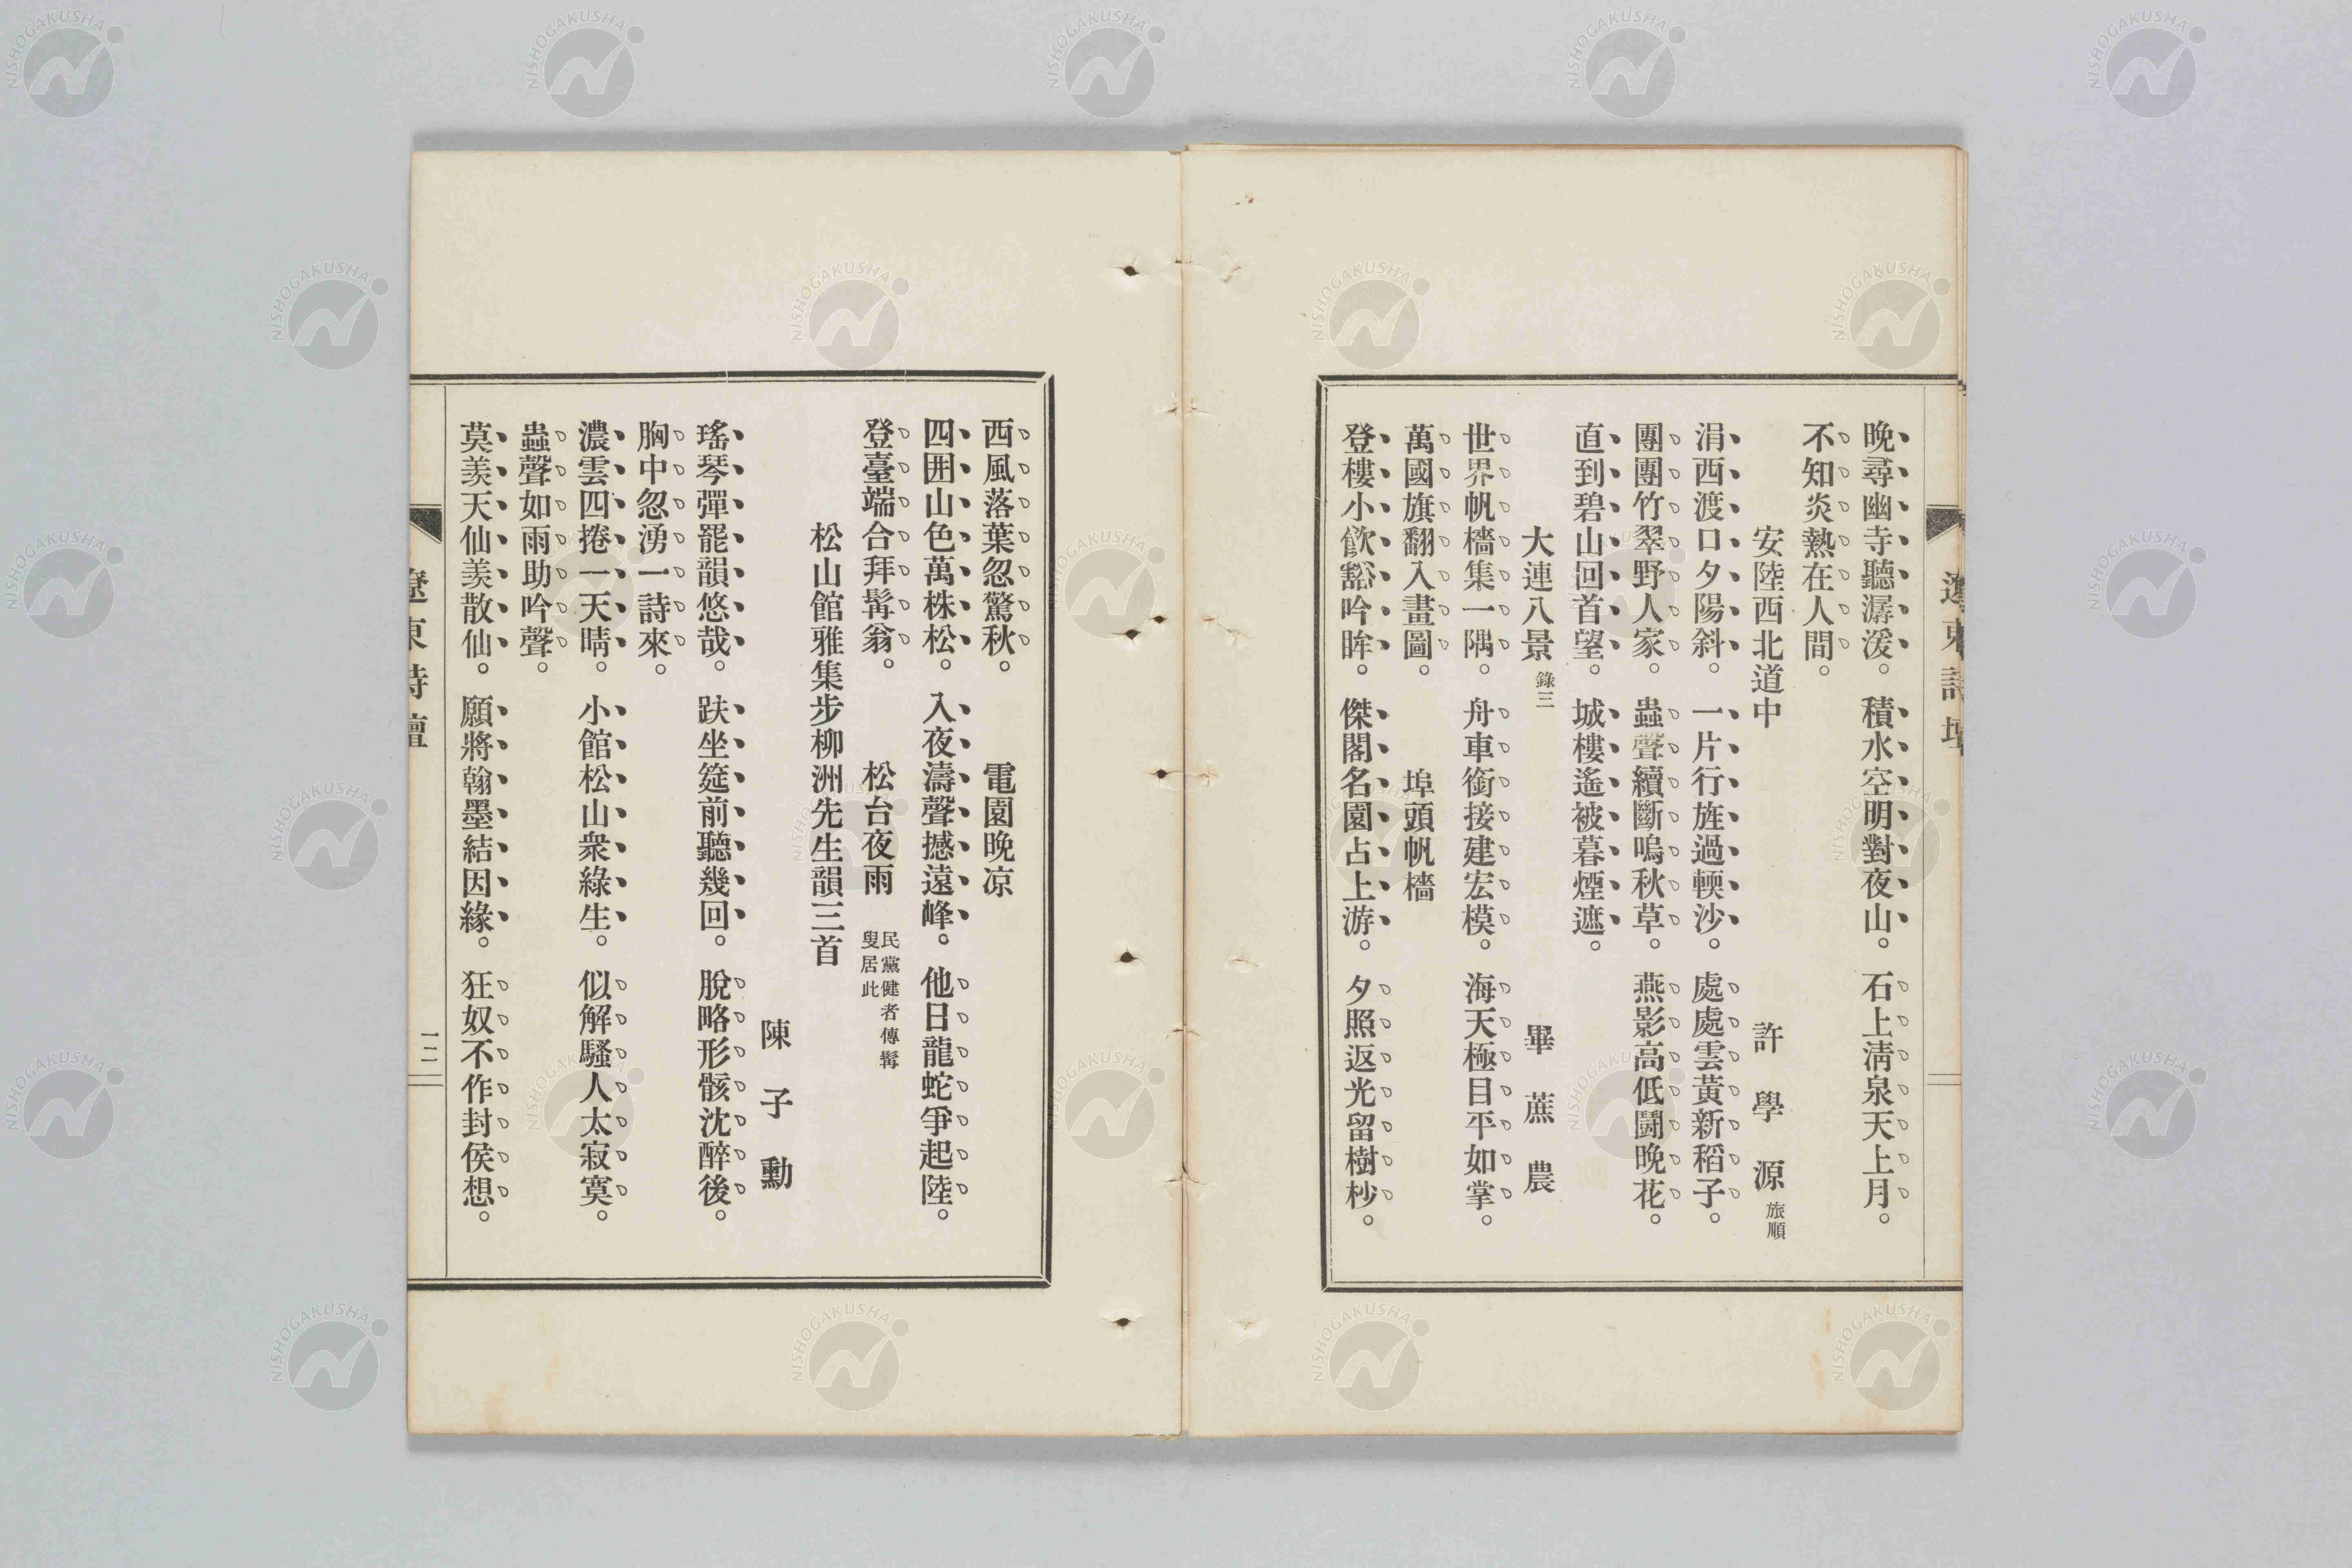 遼東詩壇
晚尋幽寺聽潺湲。積水空明對夜山。石上淸泉天上月。
不知炎熱在人間。
安陸西北道中 許學源 旅順
涓西渡口夕陽斜。一片行旌過輭沙。處處雲黃新稻子。
團團竹翠野人家。蟲聲續斷嗚秋草。燕影高低鬪晚花。
直到碧山回首望。城樓遙被暮煙遮。
大連八景 錄三 畢蔗農
世界帆檣集一隅。舟車銜接建宏模。海天極目平如掌。
萬國旗翻入畫圖。 埠頭帆檣
登樓小飮豁吟眸。傑閣名園占上游。夕照返光留樹杪。
西風落葉忽驚秋。 電園晚凉
四囲山色萬株松。入夜濤聲撼遠峰。他日龍蛇爭起陸。
登臺端合拜髯翁。 松台夜雨 民黨健者傅髯叟居此
松山館雅集步柳洲先生韻三首
陳子勳
瑤琴彈罷韻悠哉。趺坐筵前聽幾回。脫略形骸沈醉後。
胸中忽湧一詩來。
濃雲四捲一天晴。小館松山衆綠生。似解騷人太寂寞。
蟲聲如雨助吟聲。
莫羨天仙羨散仙。願將翰墨結因緣。狂奴不作封侯想。
遼東詩壇
一二
NISHOGAKUSHA